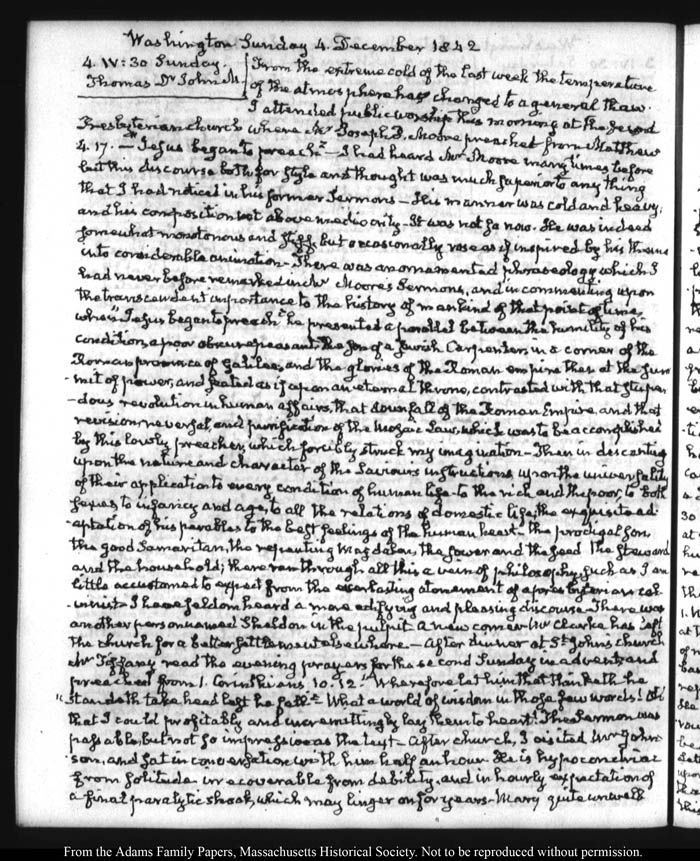 Washington Sunday 4. December 1842
4. IV: 30 Sunday.
Thomas Dr John M.
From the extreme cold of the last week the temperature
of the atmosphere has changed to a general thaw.
I attended public worship this morning at the second
Presbyterian church where Mr Joseph D. Moore preached from Matthew
4. 17. — "Jesus began to preach" — I had heard Mr Moore many times before
but this discourse both for style and thought was much superior to any thing
that I had noticed in his former Sermons — His manner was cold and heavy;
and his composition not above mediocrity — It was not so now. He was indeed
somewhat monotonous and stiff, but occasionally rose as if inspired by his theme
into considerable animation — There was an ornamented phraseology which I
had never before remarked in Mr Moore's Sermons, and in commenting upon
the transcendent importance to the history of mankind of that point of time,
when "Jesus began to preach" he presented a parallel between the humility of his
condition, a poor obscure peasant, the Son of a Jewish Carpenter, in a corner of the
Roman province of Galilee, and the glories of the Roman empire then at the sum
-mit of power, and seated as if upon an eternal throne, contrasted with that stupen
-dous revolution in human affairs, that downfall of the Roman Empire, and that
revision, reversal, and purification of the Mosaic Law, which was to be accomplished
by this lowly preacher, which forcibly struck my imagination — Then in descanting
upon the nature and character of the Saviour's instructions, upon the universality
of their application to every condition of human life — to the rich and the poor, to both
sexes, to infancy and age, to all the relations of domestic life, the exquisite ad
-aptation of his parables to the best feelings of the human heart — the prodigal Son,
the good Samaritan, the repenting Magdalen, the sower and the seed the Steward
and the household; there ran through all this a vein of philosophy, such as I am
little accustomed to expect from the everlasting atonement of a presbyterian cal
-vinist — I have seldom heard a more edifying and pleasing discourse — There was
another person named Sheldon in the pulpit a new comer Mr Clarke has left
the church for a better settlement elsewhere — After dinner at St John's church
Mr Tiffany read the evening prayers for the second Sunday in advent; and
preached from 1. Corinthians 10. 12. "Wherefore let him that thinketh he
"standeth take heed lest he fall" — What a world of wisdom in those few words! Oh!
that I could profitably and unremittingly lay them to heart! The Sermon was
passable, but not so impressive as the text — After church, I visited Mr John
son, and sat in conversation with him half an hour. He is hypochondriac
from solitude irrecoverable from debility, and in hourly expectation of
a final paralytic shock, which may linger on for years — Mary quite unwell
From the Adams Family Papers, Massachusetts Historical Society. Not to be reproduced without permission.